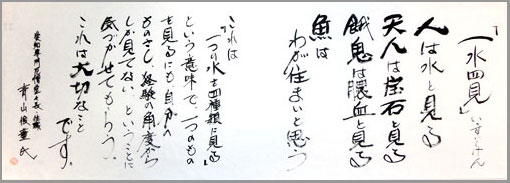 「一水四見」いっすいしけん
人は水と見る
天人は宝石と見る
餓鬼は膿血と見る
魚は
わが住まいと思う
これは
「一つの水を四種類に見る」
という意味で、一つのもの
を見るにも自分の
ものさし、経験の角度から
しか見てない、ということに
気づかせてもらう。
これは大切なこと
です。
愛知専門尼僧堂々長・住職
青山俊董氏